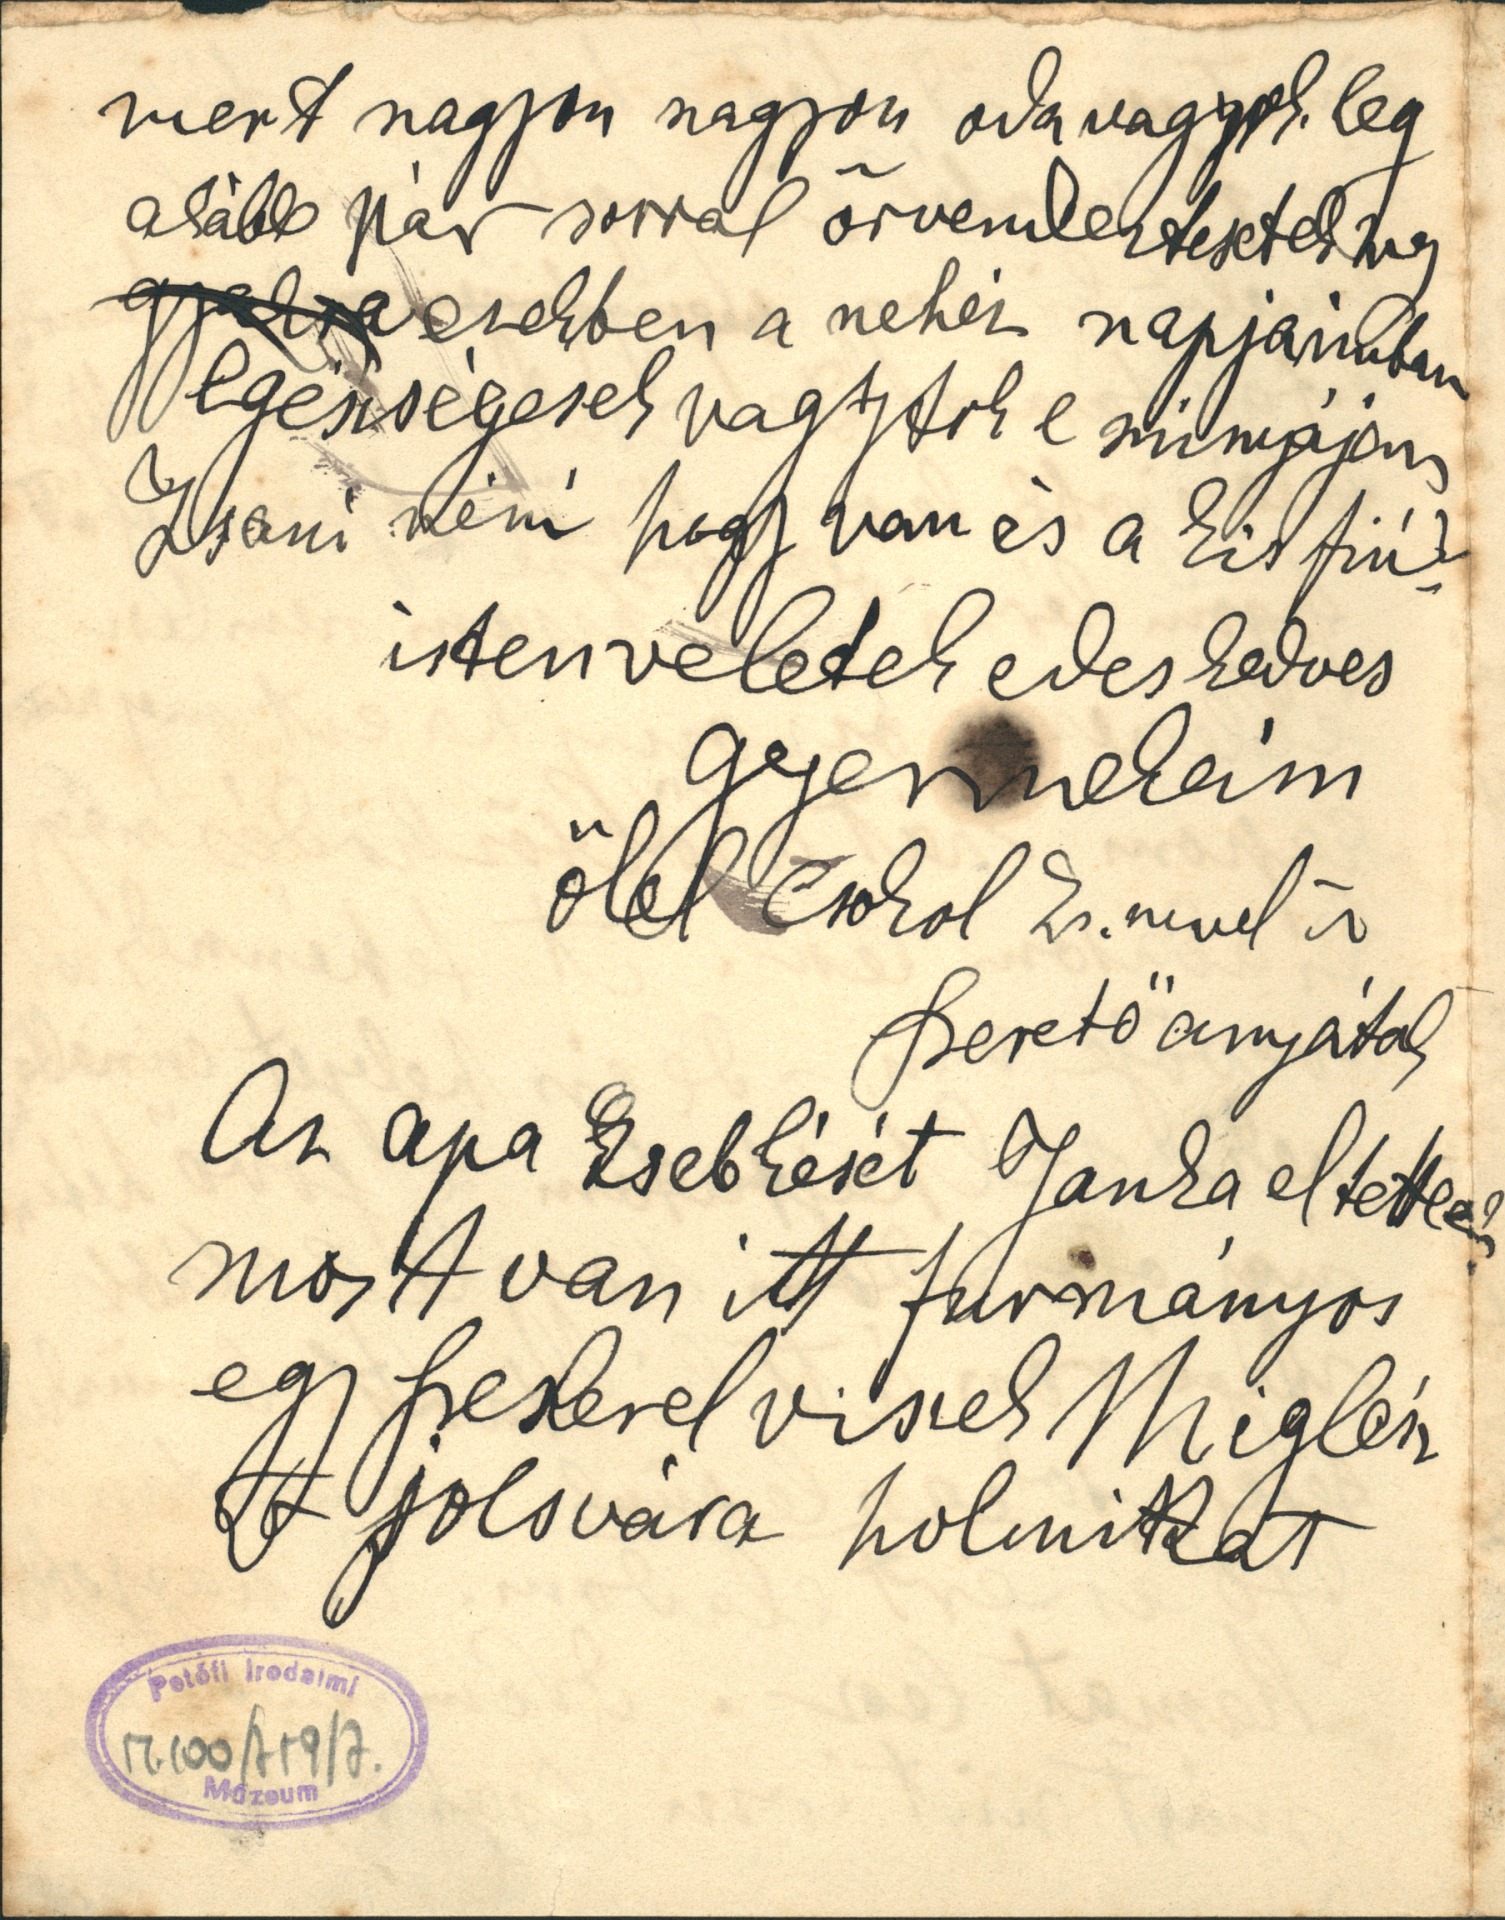 mert nagyon nagyon oda vagyok. leg
alább pár sorral örvendeztesetek meg
ezekben a nehéz napjaimban
egésségesek vagytok e minyájan
Zsani néni hogy van és a kis fiú?
isten veletek edes kedves
gyermekeim
ölel csokol
szerető anyátok
Az apa Zsebkését Janka eltette
most van itt furmányos
egy szekerel viszek Miglész
t jolsvára holmitkat
Petőfi Irodalmi
Múzeum